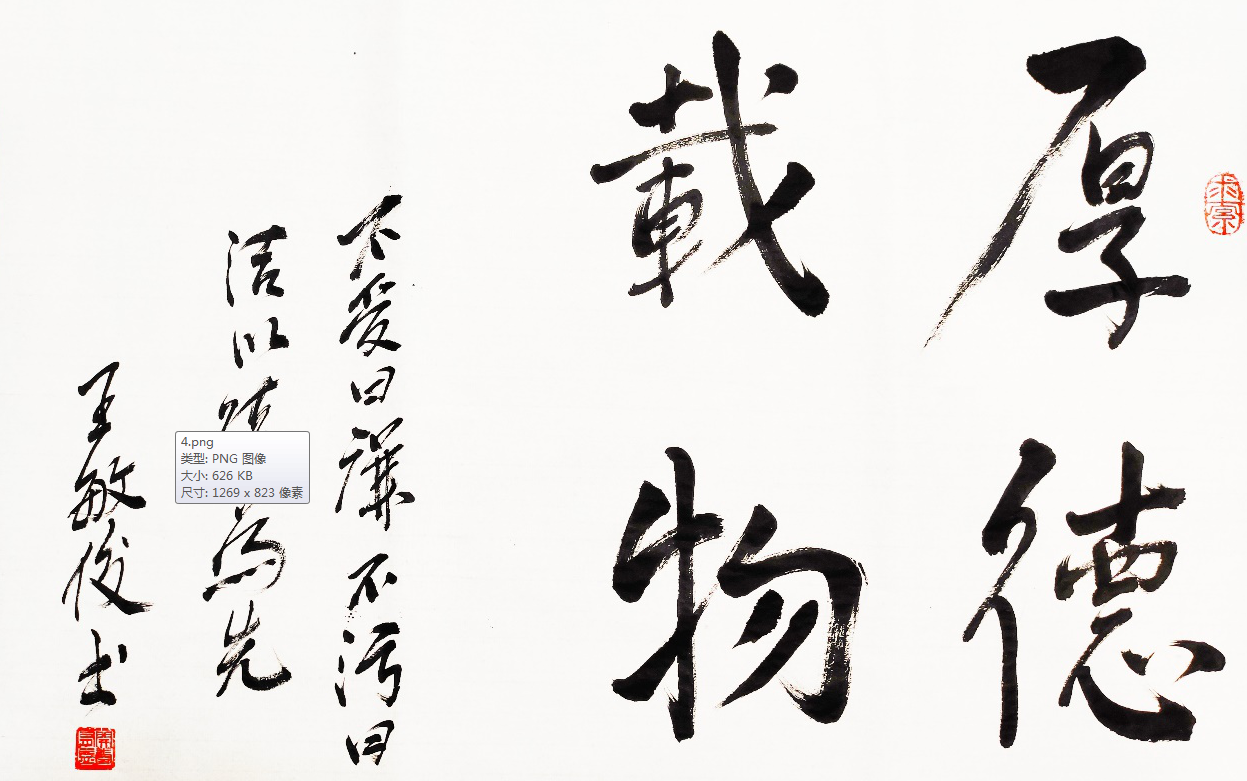 厚德
載物
不受曰廉不污曰
洁以為先
王敏俊书
4.png
类型: PNG 图像
大小: 626 KB
尺寸: 1269 x 823 像素